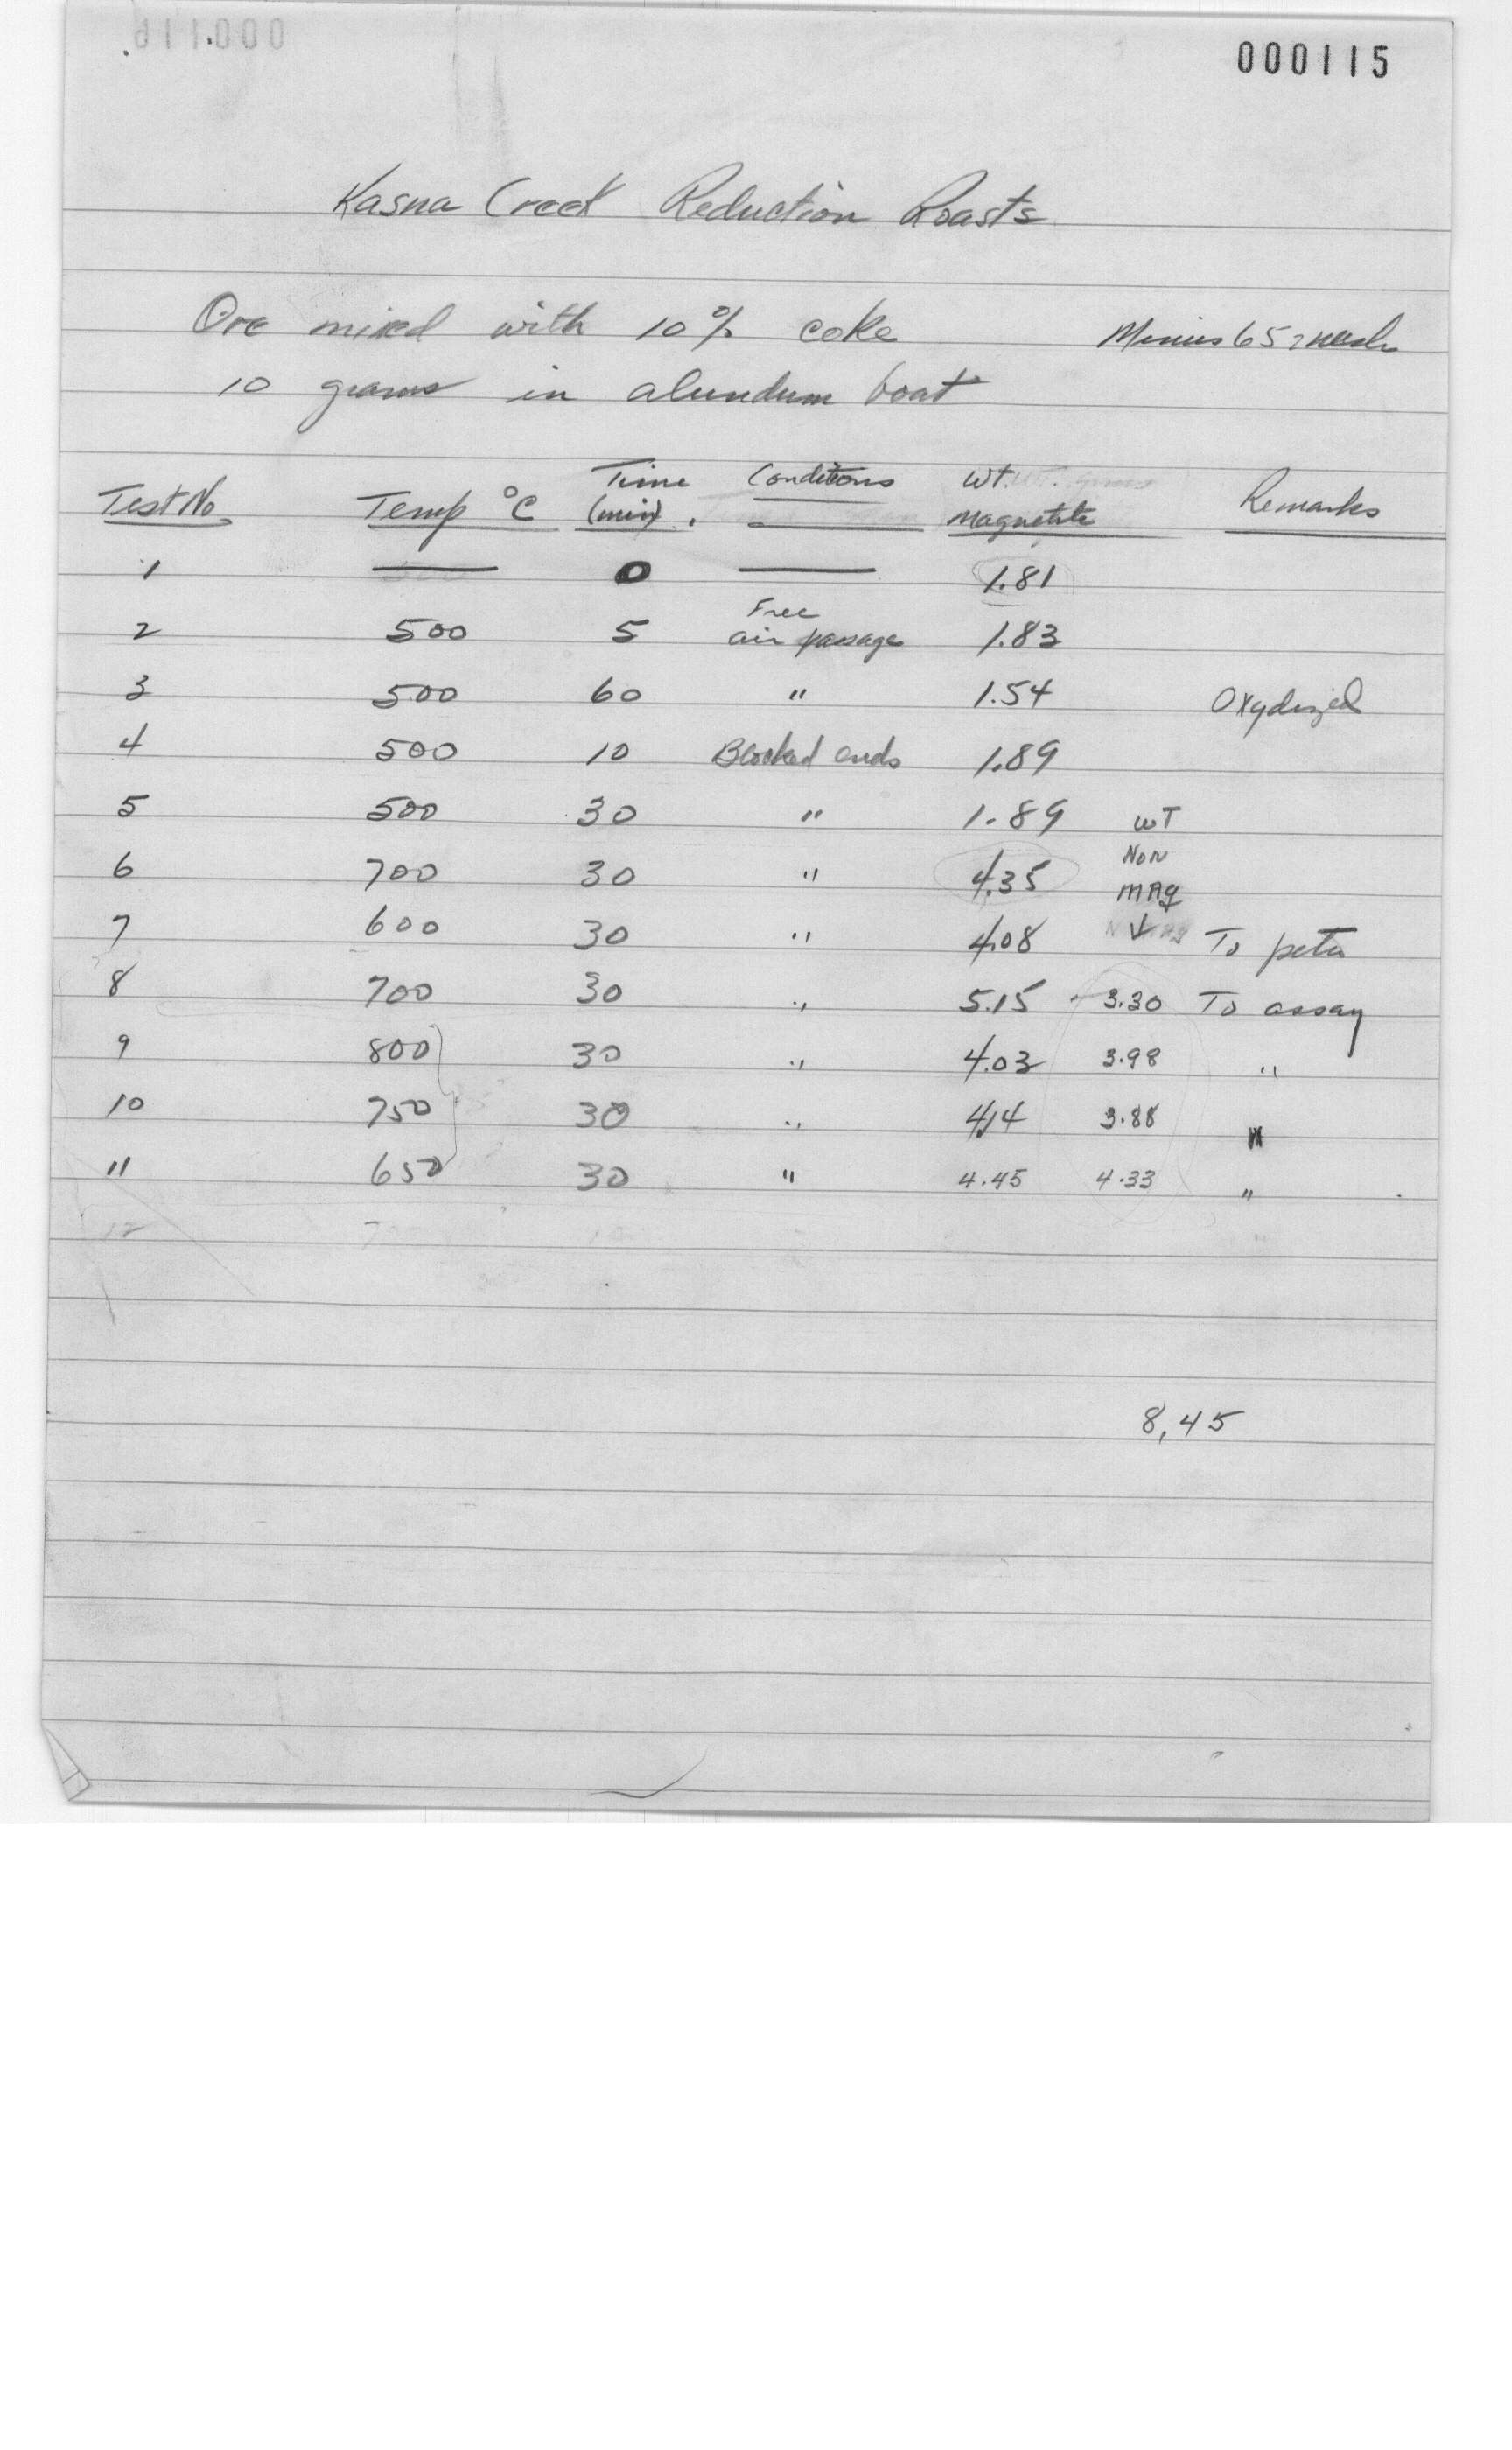 000115
Kasna Creek Reduction Roasts
Ore mixed with 10% coke Minus 65 mesh
10 grams in alundum boat
Test No Temp °C Time (min) Conditions Wt. Magnetite Remarks
1 — 0 — 1.81
2 500 5 Free air passage 1.83
3 500 60 " 1.54 Oxydized
4 500 10 Blocked ends 1.89
5 500 30 " 1.89 WT
6 700 30 " 4.35 Non MAg
7 600 30 " 4.08 ↓ To pete
8 700 30 " 5.15 3.30 To assay
9 800 30 " 4.03 3.98 "
10 750 30 " 4.14 3.88 "
11 650 30 " 4.45 4.33 "
12
8,45